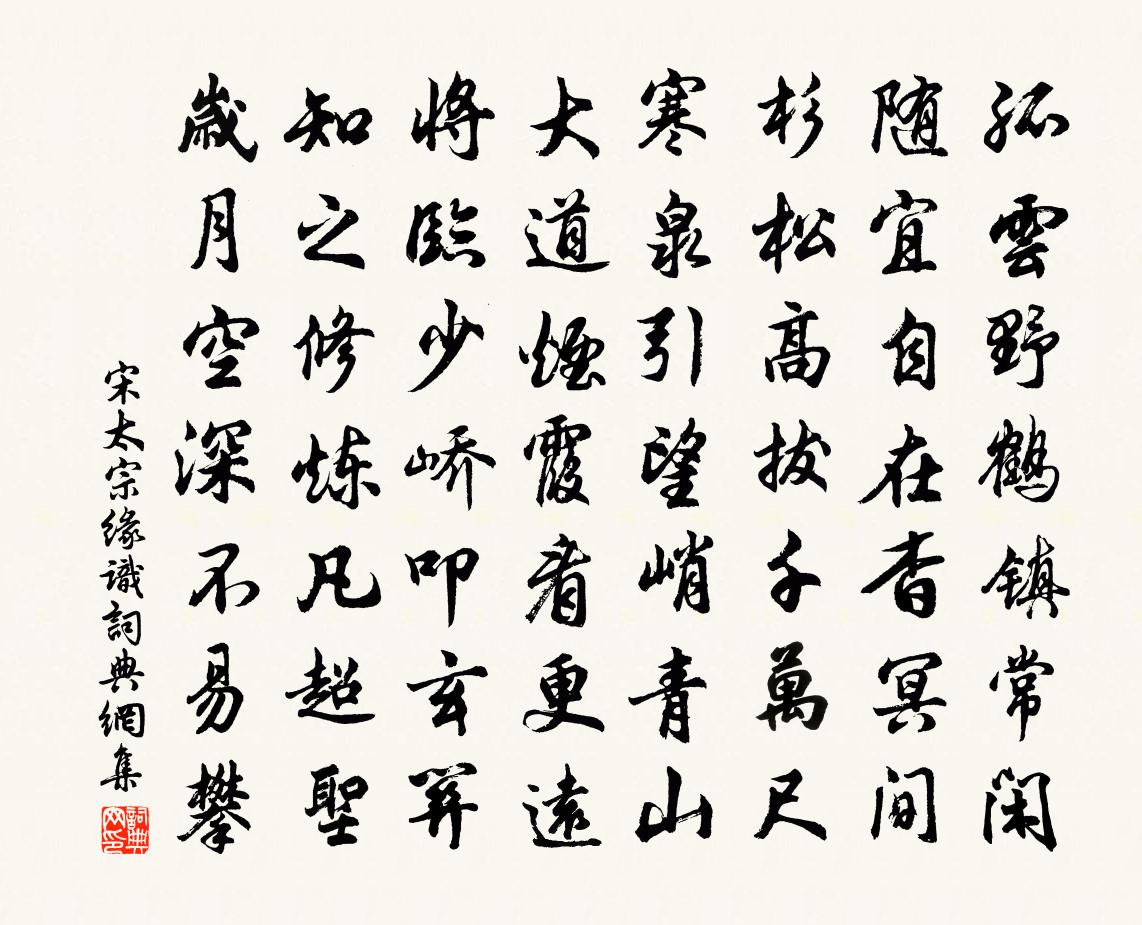 孤雲野鶴镇常闲
随宜自在杳冥间
杉松高拔千萬尺
寒泉引望峭青山
大道煙霞看更遠
将臨少峤叩玄関
知之修炼凡超聖
歲月空深不易攀
宋太宗緣識詞典網集
詞典网印